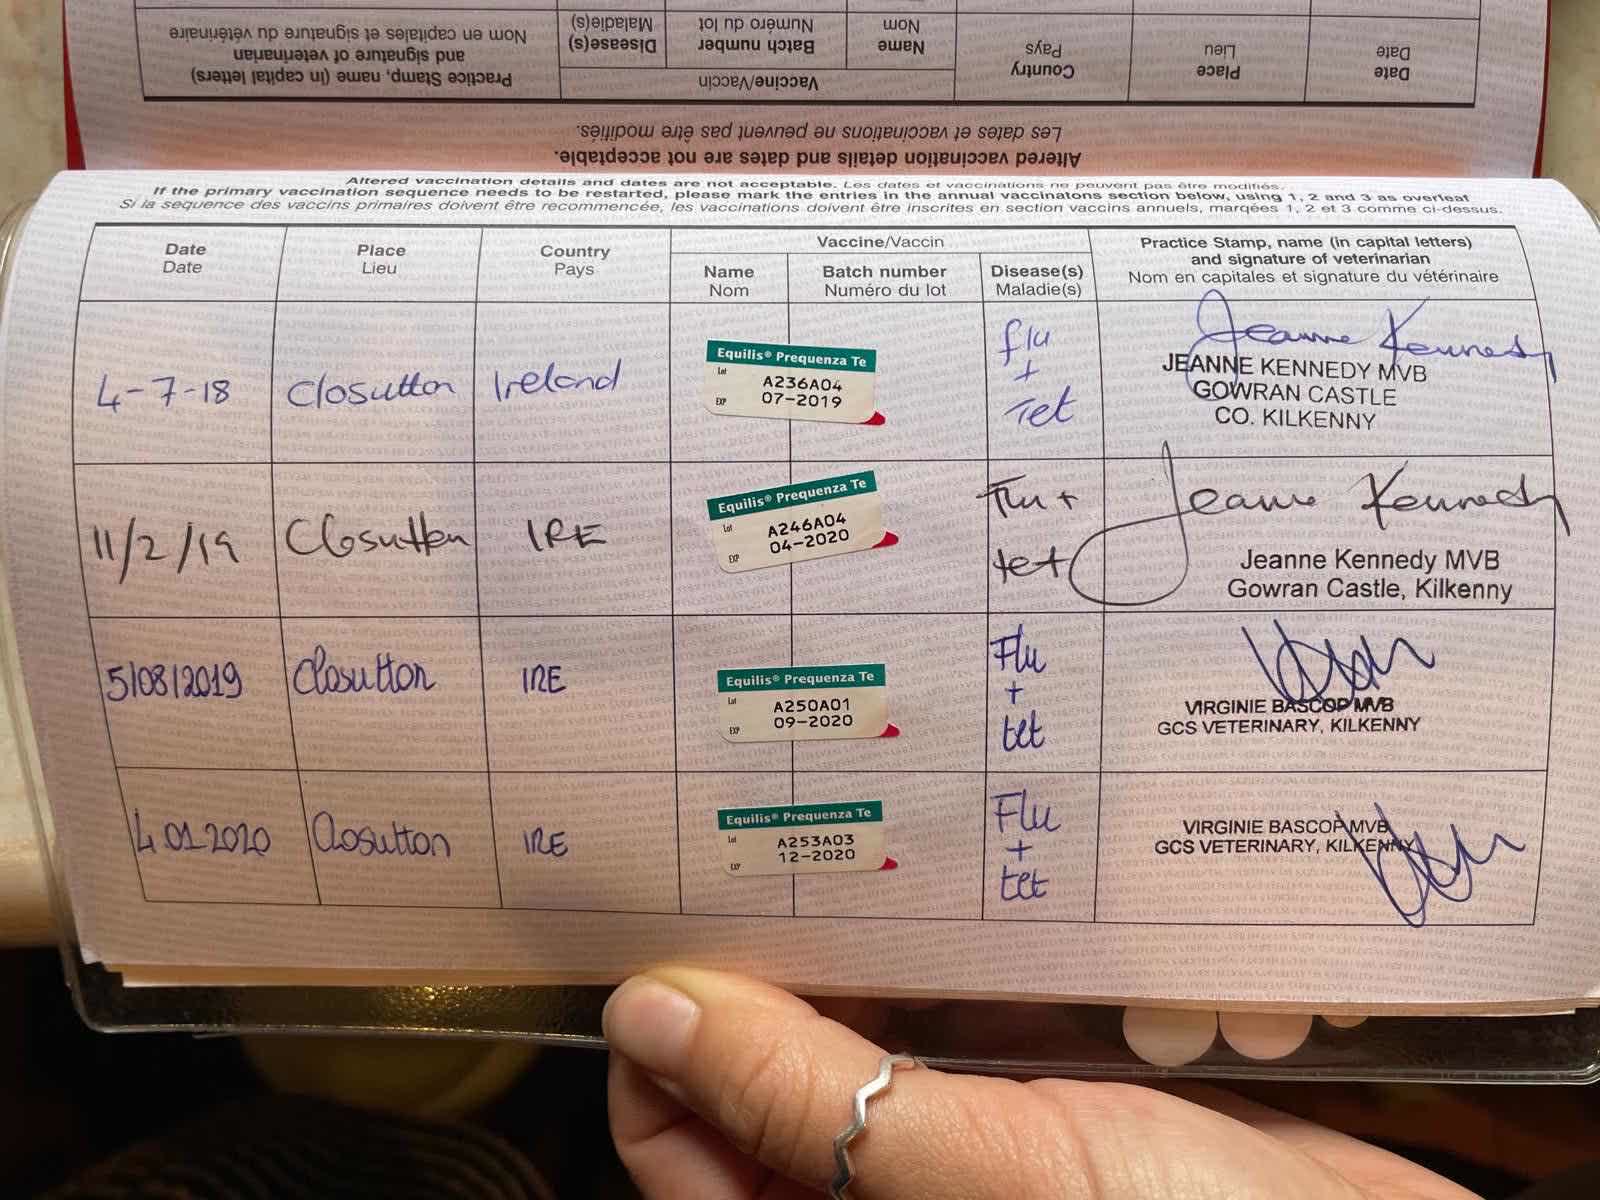 Practice Stamp, name (in capital letters)
and signature of veterinarian
Nom en capitales et signature du vétérinaire
Vaccine/Vaccin
Disease(s)
Maladie(s)
Batch number
Numéro du lot
Name
Nom
Country
Pays
Place
Lieu
Date
Date
Altered vaccination details and dates are not acceptable.
Les dates et vaccinations ne peuvent pas être modifiés.
Altered vaccination details and dates are not acceptable. Les dates et vaccinations ne peuvent pas être modifiés.
If the primary vaccination sequence needs to be restarted, please mark the entries in the annual vaccinatons section below, using 1, 2 and 3 as overleaf
Si la sequence des vaccins primaires doivent être recommencée, les vaccinations doivent être inscrites en section vaccins annuels, marqées 1, 2 et 3 comme ci-dessus.
Date
Date
Place
Lieu
Country
Pays
Vaccine/Vaccin
Name
Nom
Batch number
Numéro du lot
Disease(s)
Maladie(s)
Practice Stamp, name (in capital letters)
and signature of veterinarian
Nom en capitales et signature du vétérinaire
4-7-18
Closutton
Ireland
Equilis® Prequenza Te
Lot A236A04
EXP 07-2019
flu
+
Tet
Jeanne Kennedy
JEANNE KENNEDY MVB
GOWRAN CASTLE
CO. KILKENNY
11/2/19
Closutton
IRE
Equilis® Prequenza Te
Lot A246A04
EXP 04-2020
Flu +
tet
Jeanne Kennedy
Jeanne Kennedy MVB
Gowran Castle, Kilkenny
5/08/2019
Closutton
IRE
Equilis® Prequenza Te
Lot A250A01
EXP 09-2020
Flu
+
tet
VIRGINIE BASCOP MVB
GCS VETERINARY, KILKENNY
4.01.2020
Closutton
IRE
Equilis® Prequenza Te
Lot A253A03
EXP 12-2020
Flu
+
tet
VIRGINIE BASCOP MVB
GCS VETERINARY, KILKENNY